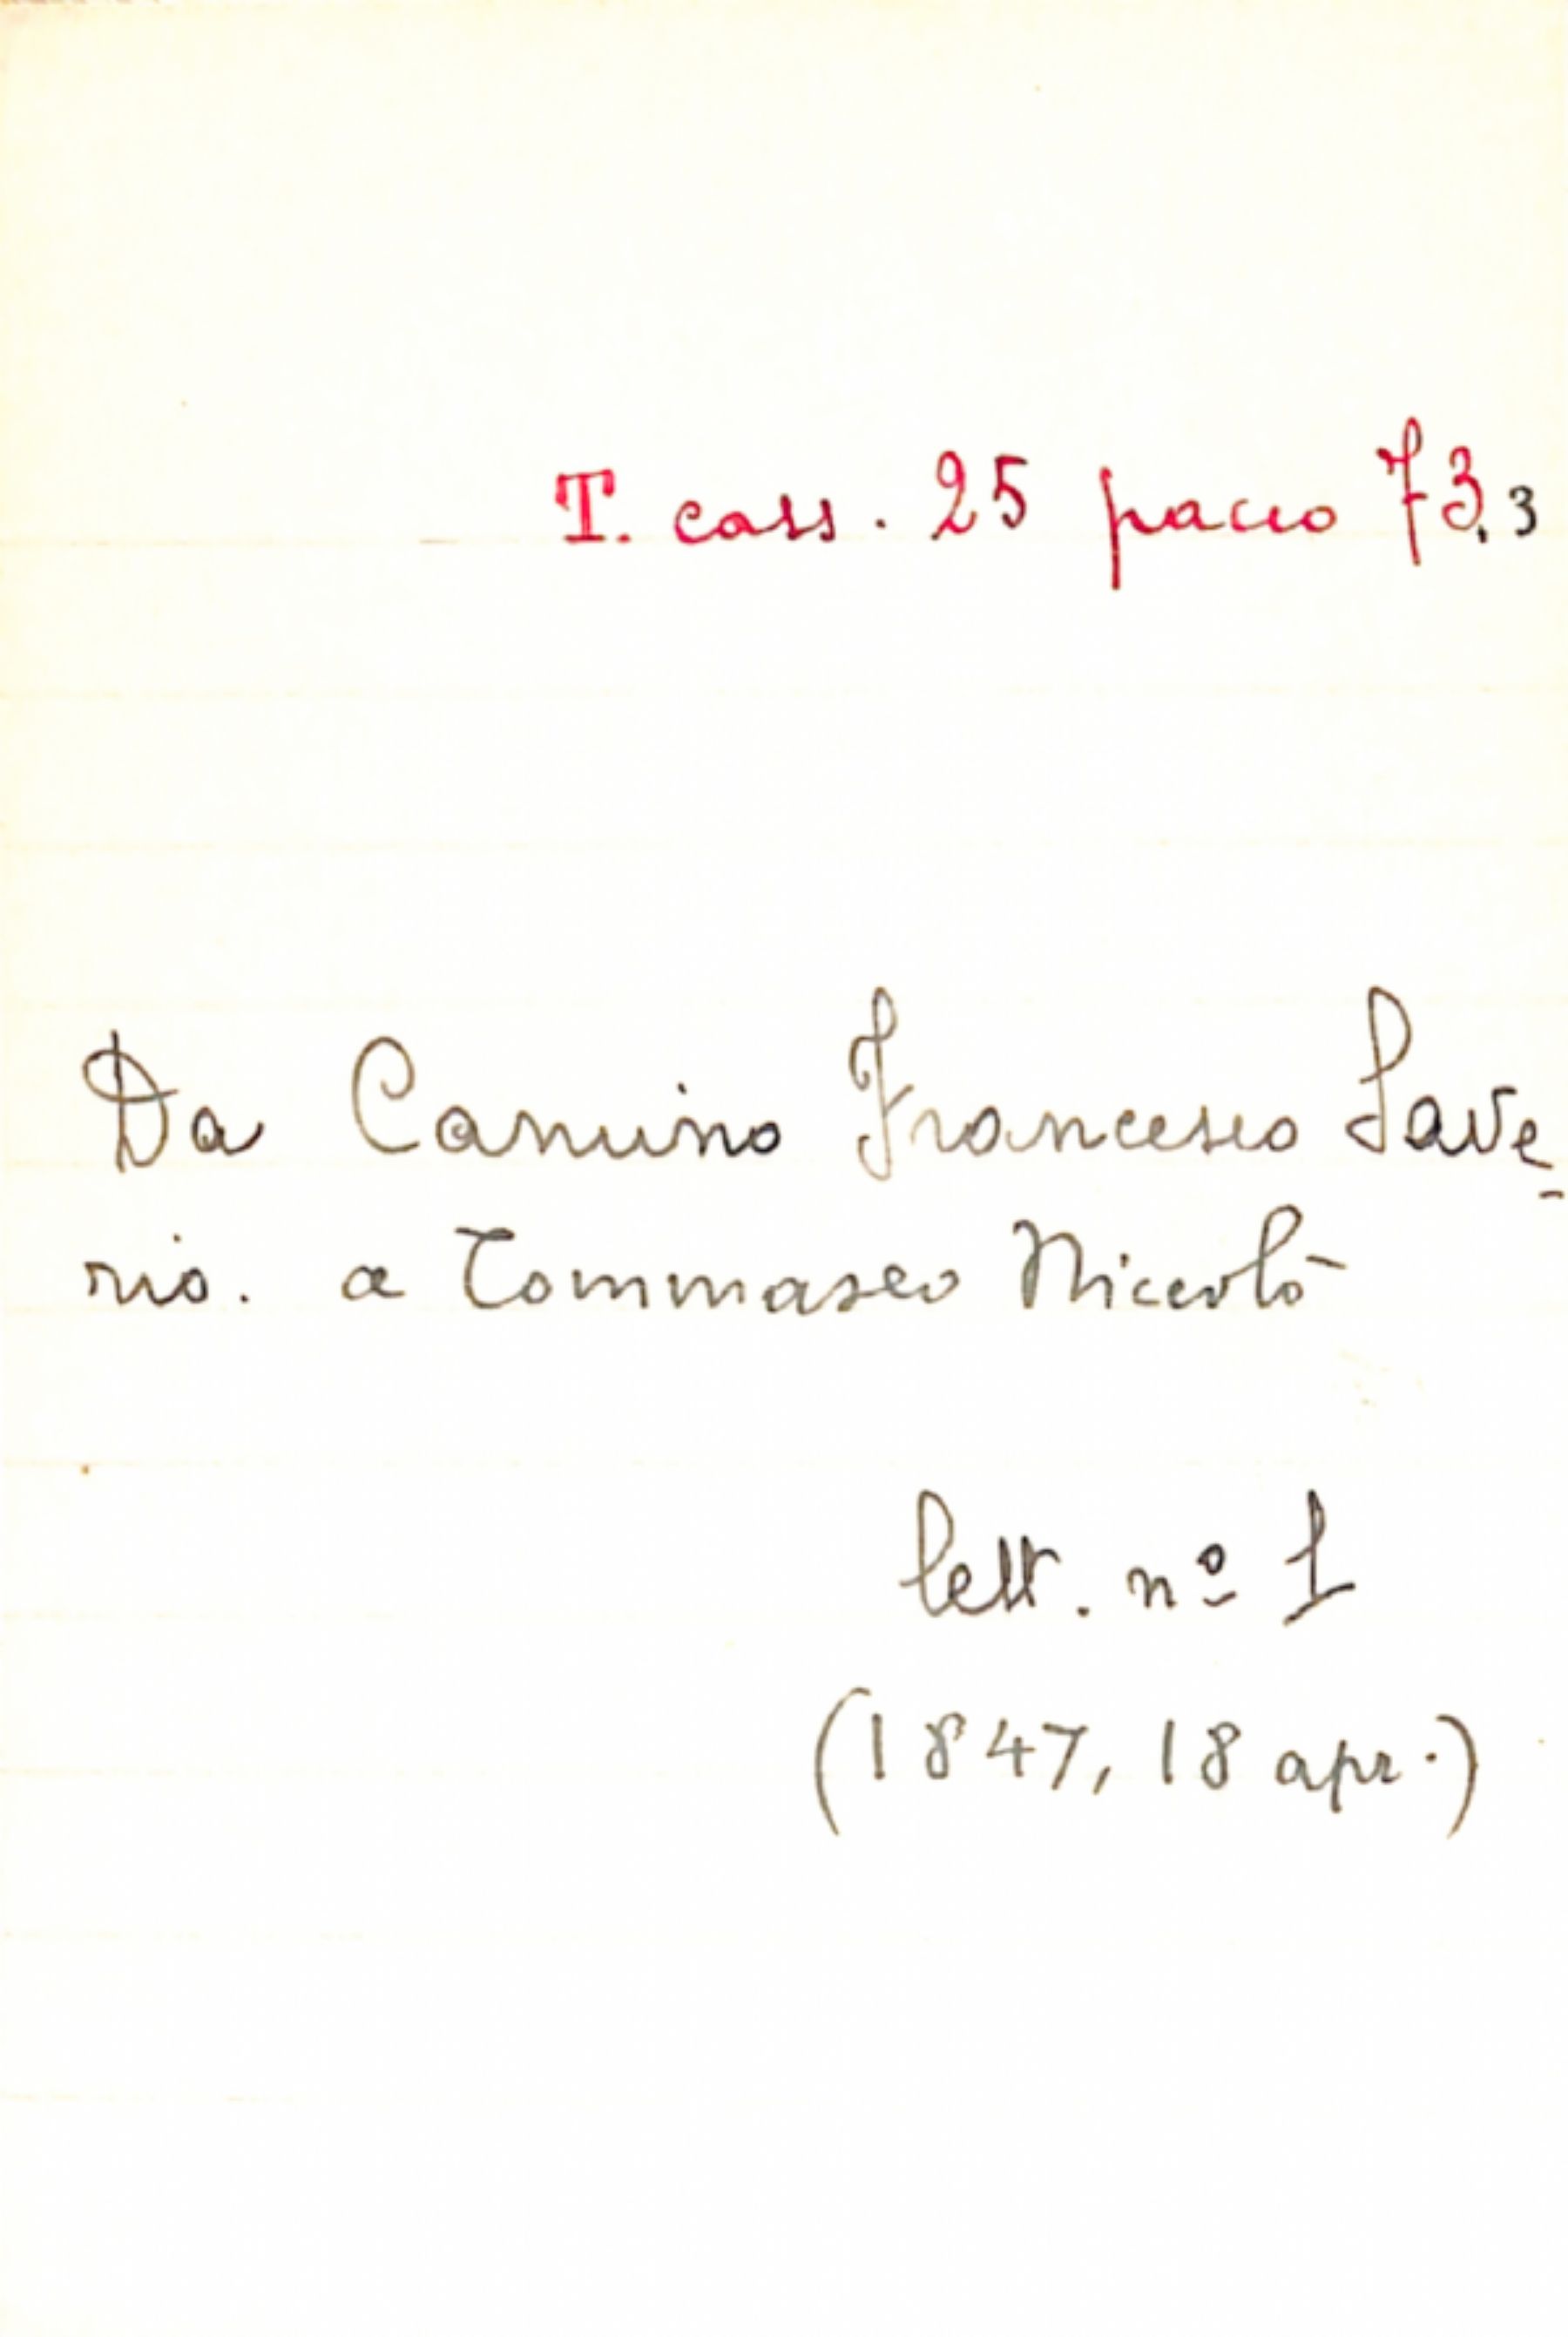 T. cass. 25 pacco 73.3
Da Camino Francesco Save-
rio. a Tommaseo Niccolò
lett. nº 1
(1847, 18 apr.)